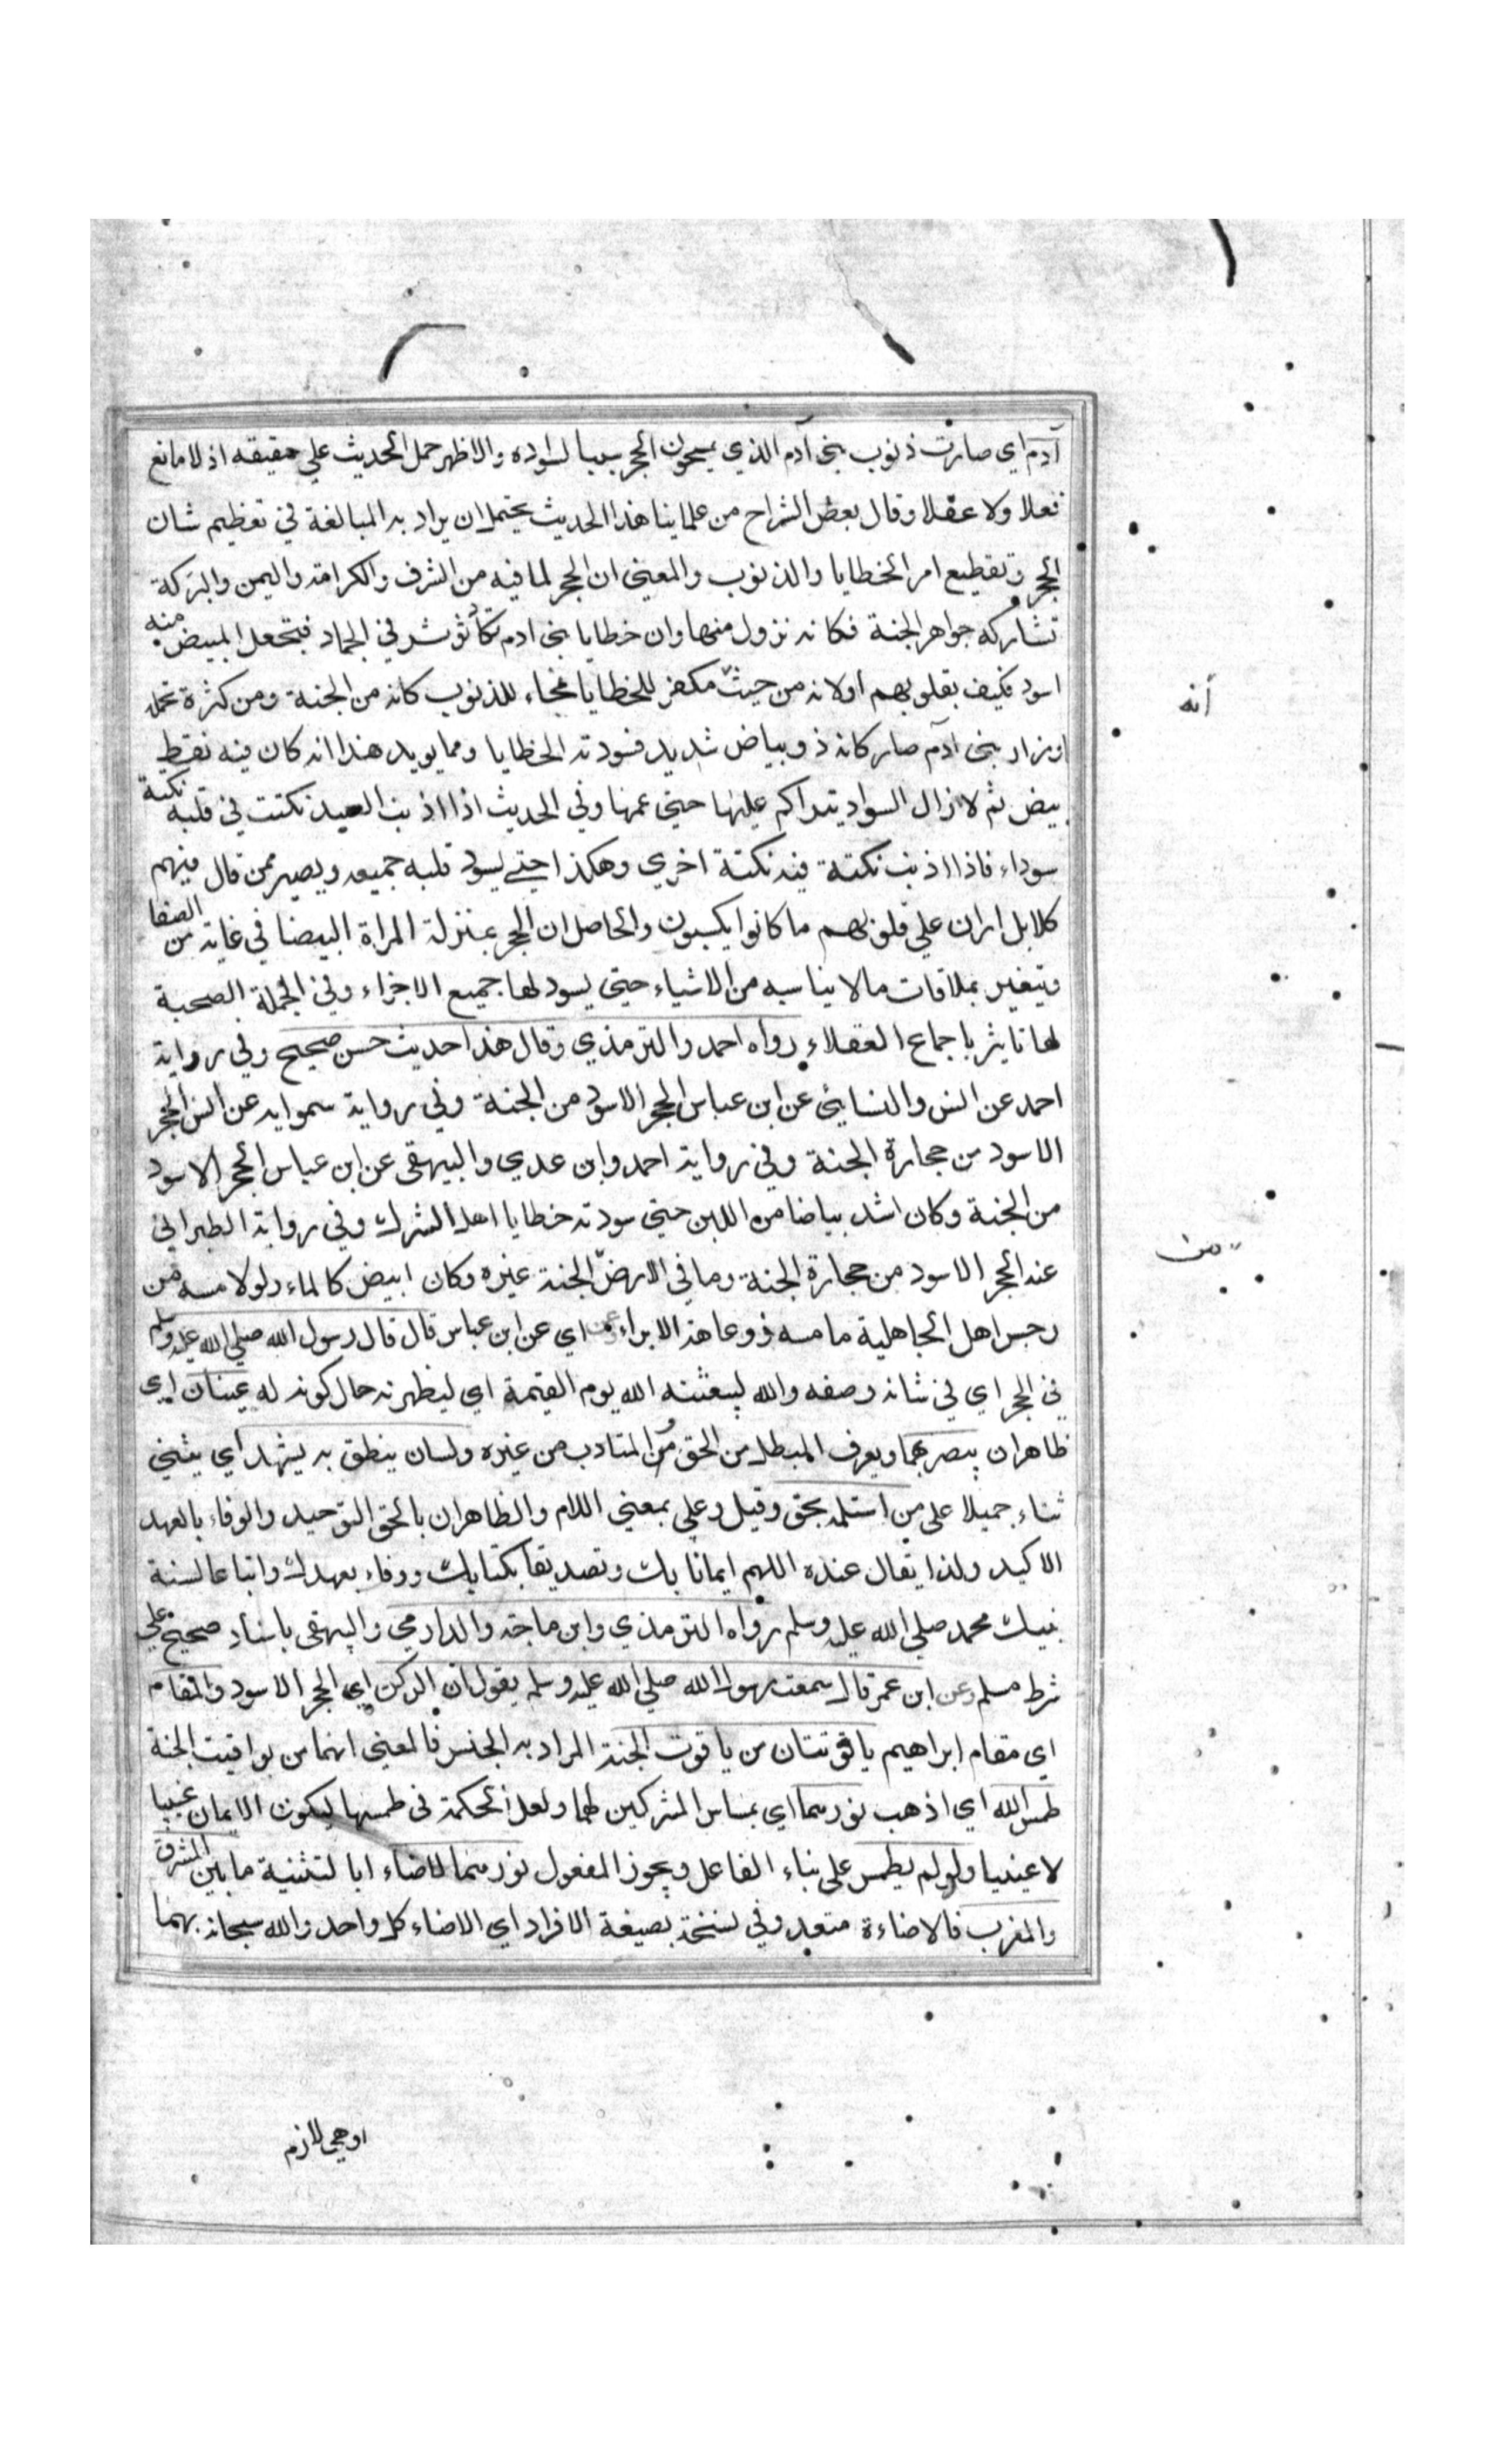 آدم اي صارت ذنوب بني آدم الذي يمسحون الحجر سببا لسواده والاظهر حمل الحديث علي حقيقه اذ لا مانع
نقلا ولا عقلا وقال بعض الشراح من علماينا هذا الحديث يحتمل ان يراد به المبالغة في تعظيم شان
الحجر وتفظيع امر الخطايا والذنوب والمعني ان الحجر لما فيه من الشرف والكرامة واليمن والبركة
تشاركه جواهر الجنة فكانه نزول منها وان خطايا بني ادم تكاد تؤثر في الجماد فتجعل المبيض منه
اسود فكيف بقلوبهم اولانه من حيث مكفر للخطايا محاء للذنوب كانه من الجنة ومن كثرة تحمله
اوزار بني آدم صار كانه ذو بياض شديد فسودته الخطايا ومما يويد هذا انه كان فيه نقط
بيض ثم لازال السواد يتراكم عليها حتي عمها وفي الحديث اذا اذنب العبد نكتت في قلبه نكتة
سوداء فاذا اذنب نكتة فيه نكتة اخري وهكذا حتي يسود قلبه جميعه ويصير ممن قال فيهم
كلا بل ران علي قلوبهم ما كانوا يكسبون والحاصل ان الحجر بمنزلة المراة البيضا في غاية من الصفا
وتتغير بملاقات مالا يناسبه من الاشياء حتي يسود لها جميع الاجزاء وفي الجملة الصحبة
لها تاثير باجماع العقلاء رواه احمد والترمذي وقال هذا حديث حسن صحيح وفي رواية
احمد عن انس والنسايي عن ابن عباس الحجر الاسود من الجنة وفي رواية سمويه عن انس الحجر
الاسود من حجارة الجنة وفي رواية احمد وابن عدي والبيهقي عن ابن عباس الحجر الاسود
من الجنة وكان اشد بياضا من اللبن حتي سودته خطايا اهل الشرك وفي رواية الطبراني
عنه الحجر الاسود من حجارة الجنة وما في الارض الجنة غيره وكان ابيض كالماء ولولا مسه من
رجس اهل الجاهلية ما مسه ذو عاهة الا براء وعنه اي عن ابن عباس قال قال رسول الله صلي الله عليه وسلم
في الحجر اي في شانه وصفه والله ليبعثنه الله يوم القيمة اي ليظهرنه حال كونه له عينان اي
ظاهران يبصر بهما ويعرف المبطل من الحق من المتادب من غيره ولسان ينطق به يشهد اي يثني
ثناء جميلا علي من استلمه بحق وقيل وعلي بمعني اللام والظاهران بالحق التوحيد والوفاء بالعهد
الاكيد ولذا يقال عنده اللهم ايمانا بك وتصديقا بكتابك ووفاء بعهدك واتباعا لسنة
نبيك محمد صلي الله عليه وسلم رواه الترمذي وابن ماجة والدارمي والبيهقي باسناد صحيح علي
شرط مسلم وعن ابن عمر قال سمعت رسول الله صلي الله عليه وسلم يقول ان الركن اي الحجر الاسود والمقام
اي مقام ابراهيم ياقوتتان من ياقوت الجنة المراد به الجنس فالمعني انهما من يواقيت الجنة
طمس الله اي اذهب نورهما اي بمساس المشركين لهما ولعل الحكمة في طمسها ليكون الايمان غيبيا
لا عينيا ولو لم يطمس علي بناء الفاعل ويجوز المفعول نورهما لاضاء ابا لتثنية ما بين المشرق
والمغرب فالاضاءة متعد وفي نسخة بصيغة الافراد اي الاضاء كل واحد والله سبحانه بهما
أنه
من
اوهي لازم